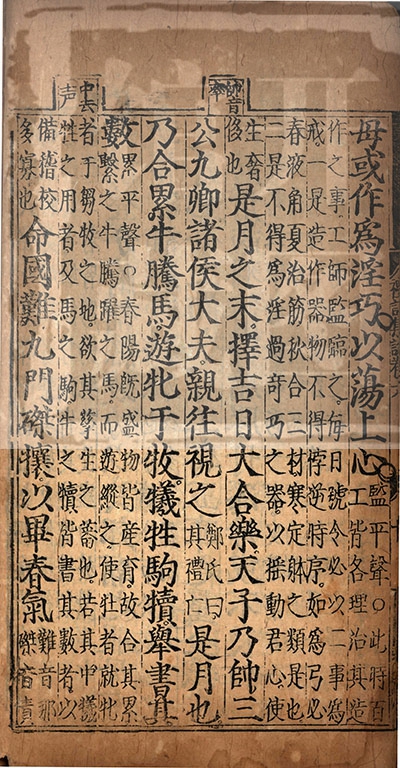 毋或作爲淫巧以蕩上心
監平聲○此時百
工皆各理治其造
作之事工師監臨之每日號令必以二事爲
戒一是造作器物不得悖逆時序如爲弓必
春液角夏治筋秋合三材寒定躰之類是也
二是不得爲淫過奇巧之器以搖動君心使
生奢
侈也
是月之末擇吉日大合樂天子乃帥三
帥音
率
公九卿諸侯大夫親往視之
鄭氏曰
其禮亡
是月也
乃合累牛騰馬遊牝于牧犧牲駒犢舉書其
數
累平聲○春陽旣盛物皆産育故合其累
繫之牛騰躍之馬而遊縱之使牡者就牝
者于芻牧之地欲其孳生之蕃也若其中犧
牲之用者及馬之駒牛之犢皆書其數者以
中去
声
備稽校
多寡也
命國難九門磔攘以畢春氣
難音那
磔音責